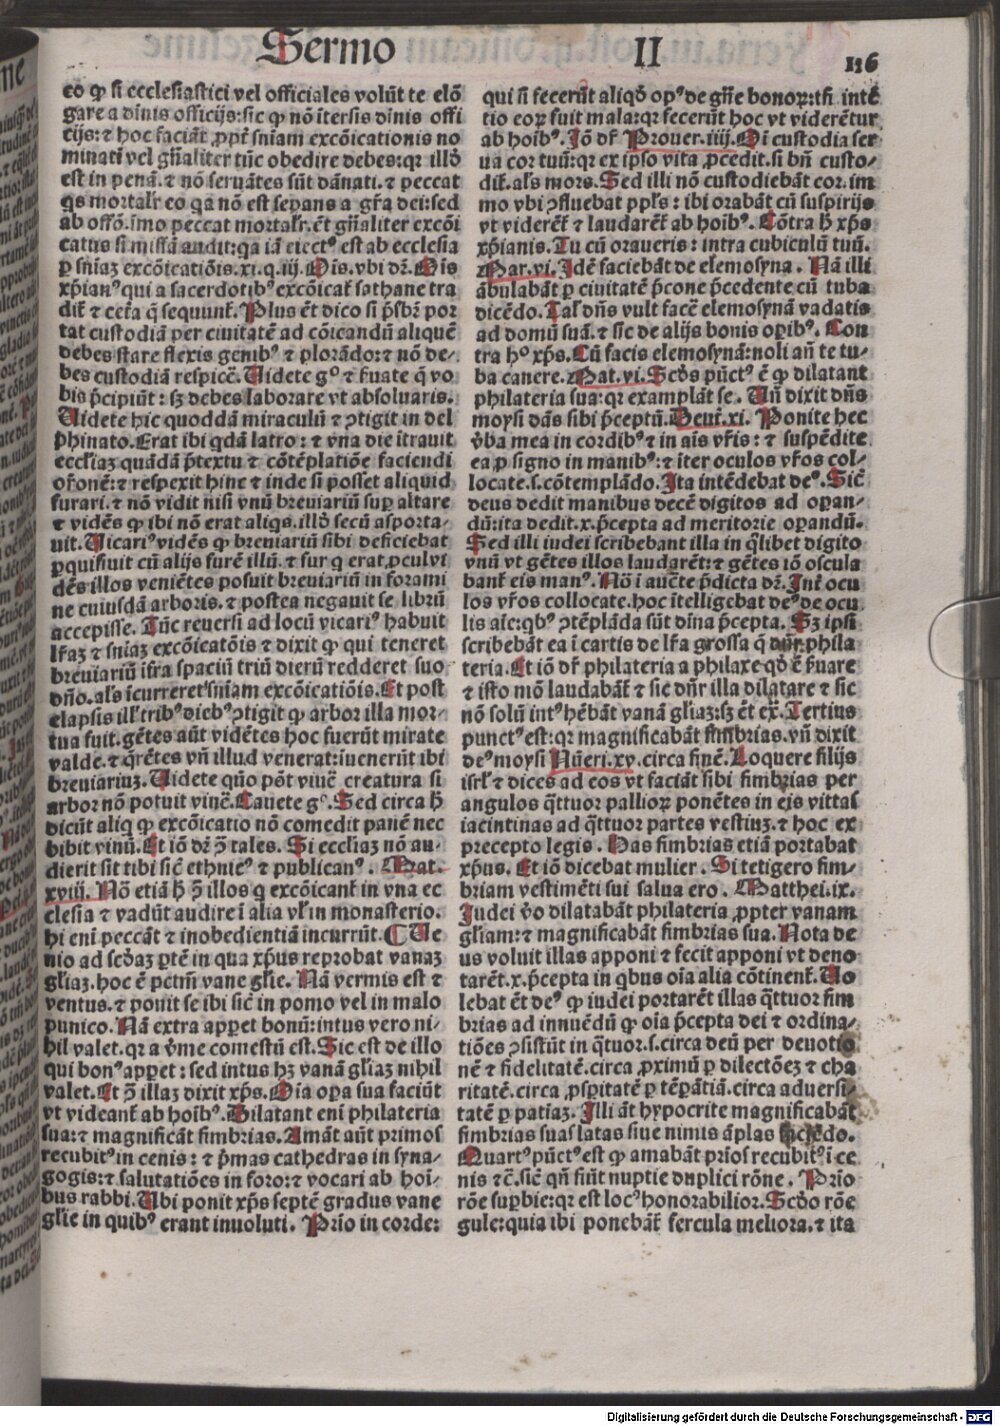 Sermo II 116
eo ꝙ si ecclesiastici vel officiales volūt te elō
gare a diuinis officijs: sic ꝙ nō itersis diuinis offi
cijs: ⁊ hoc faciāt ꝓpt̄ sniam excōicationis no
minati vel gn̄aliter tūc obedire debes: qr illō
est in penā. ⁊ nō seruātes sūt dānati. ⁊ peccat
qs mortalr̄ eo qa nō est sepans a gr̄a dei: sed
ab offō. imo peccat mortalr̄. ēt gn̄aliter excōi
catus si missā audit: qa iā eiectꝰ est ab ecclesia
ꝑ sniaꝫ excōicatiōis. xi. q. iij. Ois. vbi dr̄. Ois
xp̄ianꝰ qui a sacerdotibꝰ excōicat̄ sathane tra
dit̄ ⁊ cet̄a q̄ sequunt̄. Plus ēt dico si p̄sbr̄ por
tat custodiā per ciuitatē ad cōicandū aliquē
debes stare flexis genibꝰ ⁊ plorādo: ⁊ nō de⸗
bes custodiā respicē. Uidete gͦ ⁊ fuate q̄ vo
bis p̄cipiūt: sꝫ debes laborare vt absoluaris.
Uidete hic quoddā miraculū ꝯtigit in del
phinato. Erat ibi qdā latro: ⁊ vna die itrauit
eccl̄iaꝫ quādā p̄textu ⁊ cōtēplatiōe faciendi
or̄onē: ⁊ respexit hinc ⁊ inde si posset aliquid
furari. ⁊ nō vidit nisi vnū breuiariū suꝑ altare
⁊ vidēs ꝙ ibi nō erat aliqs. illō secū asporta⸗
uit. Uicariꝰ vidēs ꝙ breuiariū sibi deficiebat
ꝑquisiuit cū alijs furē illū. ⁊ fur q erat ꝓcul vi
dēs illos veniētes posuit breuiariū in forami
ne cuiusdā arboris. ⁊ postea negauit se librū
accepisse. Tūc reuersi ad locū vicariꝰ habuit
lr̄aꝫ ⁊ sniaꝫ excōicatōis ⁊ dixit ꝙ qui teneret
breuiariū ifra spaciū triū dierū redderet suo
dn̄o. als icurreret sniam excōicatiōis. Et post
elapsis ill̄ tribꝰ diebꝰ ꝯtigit ꝙ arbor illa mor⸗
tua fuit. gētes aūt vidētes hoc fuerūt mirate
valde. ⁊ q̄rētes vn̄ illud venerat: iuenerūt ibi
breuiariuꝫ. Uidete quō pōt viuē creatura si
arbor nō potuit viuē. Cauete gͦ. Sed circa h̄
dicūt aliq ꝙ excōicatio nō comedit panē nec
bibit vinū. Et iō dr̄ ꝯ tales. Si eccliaꝫ nō au⸗
dierit sit tibi sic̄ ethnicꝰ ⁊ publicanꝰ. Mat.
xviij. Nō etiā h̄ ꝯ illos q excōicant̄ in vna ec
clesia ⁊ vadūt audire i alia vl̄ in monasterio.
hi eni peccāt ⁊ inobedientiā incurrūt. ¶ Ue
nio ad scd̄aꝫ ꝑtē in qua xp̄us reprobat vanaꝫ
gl̄iaꝫ. hoc ē pctm̄ vane glie. Nā vermis est ⁊
ventus. ⁊ ponit se ibi sic̄ in pomo vel in malo
punico. Nā extra apꝑet bonū: intus vero ni⸗
hil valet. qr a v̄me comestū est. Sic est de illo
qui bonꝰ apꝑet: sed intus hꝫ vanā gl̄iaꝫ nihil
valet. Et ꝯ illaꝫ dixit xp̄s. Oia oꝑa sua faciūt
vt videant̄ ab hoibꝰ. Dilatant eni philateria
sua: ⁊ magnificāt fimbrias. Amāt aūt primos
recubitꝰ in cenis: ⁊ p̄mas cathedras in syna⸗
gogis: ⁊ salutatiōes in foro: ⁊ vocari ab hoi⸗
bus rabbi. Ubi ponit xp̄s septē gradus vane
gl̄ie in quibꝰ erant inuoluti. Prio in corde:
qui si fecerūt aliqd̄ opꝰ de gn̄e bonoꝝ: tn̄ intē
tio eoꝝ fuit mala: qr fecerūt hoc vt viderētur
ab hoibꝰ. Iō dr̄ Prouer. iiij. Oi custodia ser
ua cor tuū: qr ex ipso vita ꝓcedit. si bn̄ custo⸗
dit̄. als mors. Sed illi nō custodiebāt cor. im
mo vbi ꝯfluebat ppl̄s: ibi orabāt cū suspirijs
vt viderēt̄ ⁊ laudarēt̄ ab hoibꝰ. Cōtra h̄ xp̄s
xp̄ianis. Tu cū oraueris: intra cubiculū tuū.
Mar. vi. Idē faciebāt de elemosyna. Nā illi
ābulabāt ꝑ ciuitatē p̄cone p̄cedente cū tuba
dicēdo. Tal̄ dn̄s vult facē elemosynā vadatis
ad domū suā. ⁊ sic de alijs bonis oꝑibꝰ. Con
tra hͦ xp̄s. Cū facis elemosynā: noli an̄ te tu⸗
ba canere. Mat. vi. Scd̄s pūctꝰ ē ꝙ dilatant
philateria sua: qr examplāt se. Un̄ dixit dn̄s
moysi dās sibi p̄ceptū. Deut̄. xi. Ponite hec
v̄ba mea in cordibꝰ ⁊ in ais vr̄is: ⁊ suspēdite
ea ꝓ signo in manibꝰ: ⁊ iter oculos vr̄os col⸗
locate. s. cōtemplādo. Ita intēdebat deꝰ. Sic̄
deus dedit manibus decē digitos ad oꝑan⸗
dū: ita dedit. x. p̄cepta ad meritorie oꝑandū.
Sed illi iudei scribebant illa in q̄libet digito
vnū vt gētes illos laudarēt: ⁊ gētes iō oscula
bant̄ eis manꝰ. Nō i auctē p̄dicta dr̄. Int̄ ocu
los vr̄os collocate. hoc itelligebat deꝰ de ocu
lis aīe: qbꝰ ꝯtēplāda sūt diuina p̄cepta. Sꝫ ipsi
scribebāt ea i cartis de lr̄a grossa q̄ dn̄r phila
teria. Et iō dr̄ philateria a philaxe qd̄ ē p̄uare
⁊ isto mō laudabāt̄ ⁊ sic dn̄r illa dilatare ⁊ sic
nō solū intꝰ hēbāt vanā gl̄iaꝫ: sꝫ ēt ext̄. Tertius
punctꝰ est: qr magnificabāt fimbrias. vn̄ dixit
deꝰ moysi Nūeri. xv. circa finē. Loquere filijs
isrl̄ ⁊ dices ad eos vt faciāt sibi fimbrias per
angulos q̄ttuor pallioꝝ ponētes in eis vittas
iacintinas ad q̄ttuor partes vestiuꝫ. ⁊ hoc ex
precepto legis. Has fimbrias etiā portabat
xp̄us. Et iō dicebat mulier. Si tetigero fim⸗
briam vestimēti sui salua ero. Matthei. ix.
Iudei v̄o dilatabāt philateria ꝓpter vanam
gl̄iam: ⁊ magnificabāt fimbrias sua. Nota de
us voluit illas apponi ⁊ fecit apponi vt deno
tarēt. x. p̄cepta in qbus oia alia cōtinent̄. Uo
lebat ēt deꝰ ꝙ iudei portarēt illas q̄ttuor fim
brias ad innuēdū ꝙ oia p̄cepta dei ⁊ ordina⸗
tiōes ꝯsistūt in q̄tuor. s. circa deū per deuotio
nē ⁊ fidelitatē. circa ꝓximū ꝑ dilectōeꝫ ⁊ cha
ritatē. circa ꝓsꝑitatē ꝑ tēꝑātiā. circa aduersi⸗
tatē ꝑ patiaꝫ. Illi āt hypocrite magnificabāt
fimbrias suas latas siue nimis āplas faciēdo.
Quartꝰ pūctꝰ est ꝙ amabāt prios recubitꝰ i ce
nis ⁊ c̄. sic̄ qn̄ fiūt nuptie duplici rōne. Prio
rōe suꝑbie: qr est locꝰ honorabilior. Scd̄o rōe
gule: quia ibi ponebāt̄ fercula meliora. ⁊ ita
Digitalisierung gefördert durch die Deutsche Forschungsgemeinschaft - DFG